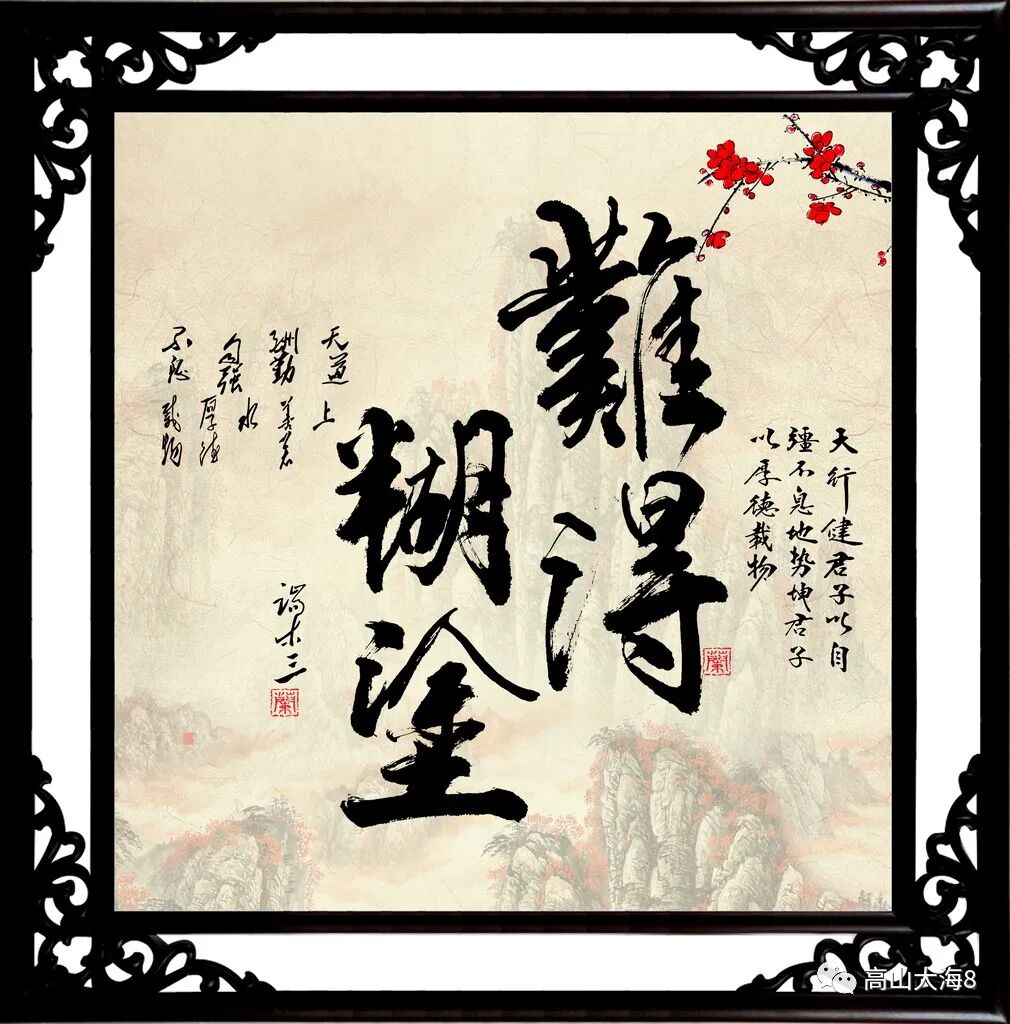 天行健君子以自
疆不息地势坤君子
以厚德载物
難得
糊塗
天道 上
酬勤 善若
自强 水 厚德
不息 载物
端木三
高山大海8